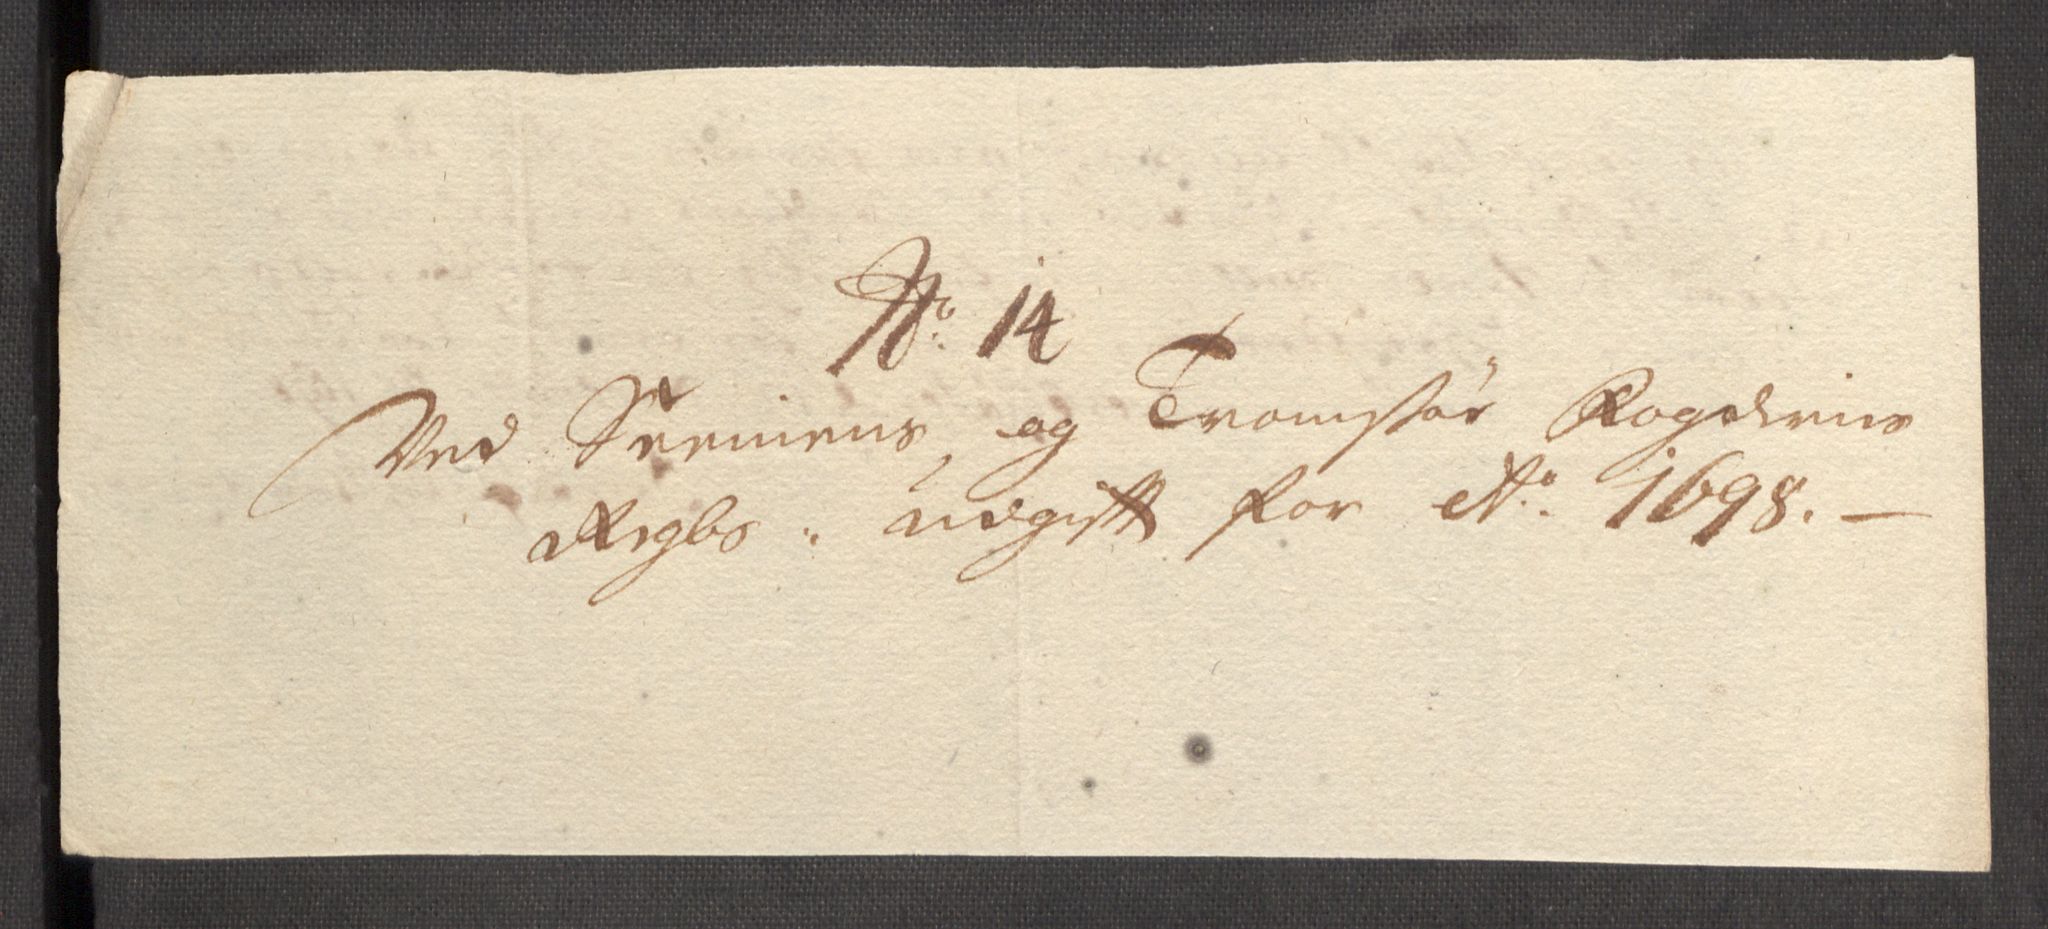 No. 14
Ved Seeniens og Tromsøe Fogderies
Regbs. udgifft for Ao. 1698. —